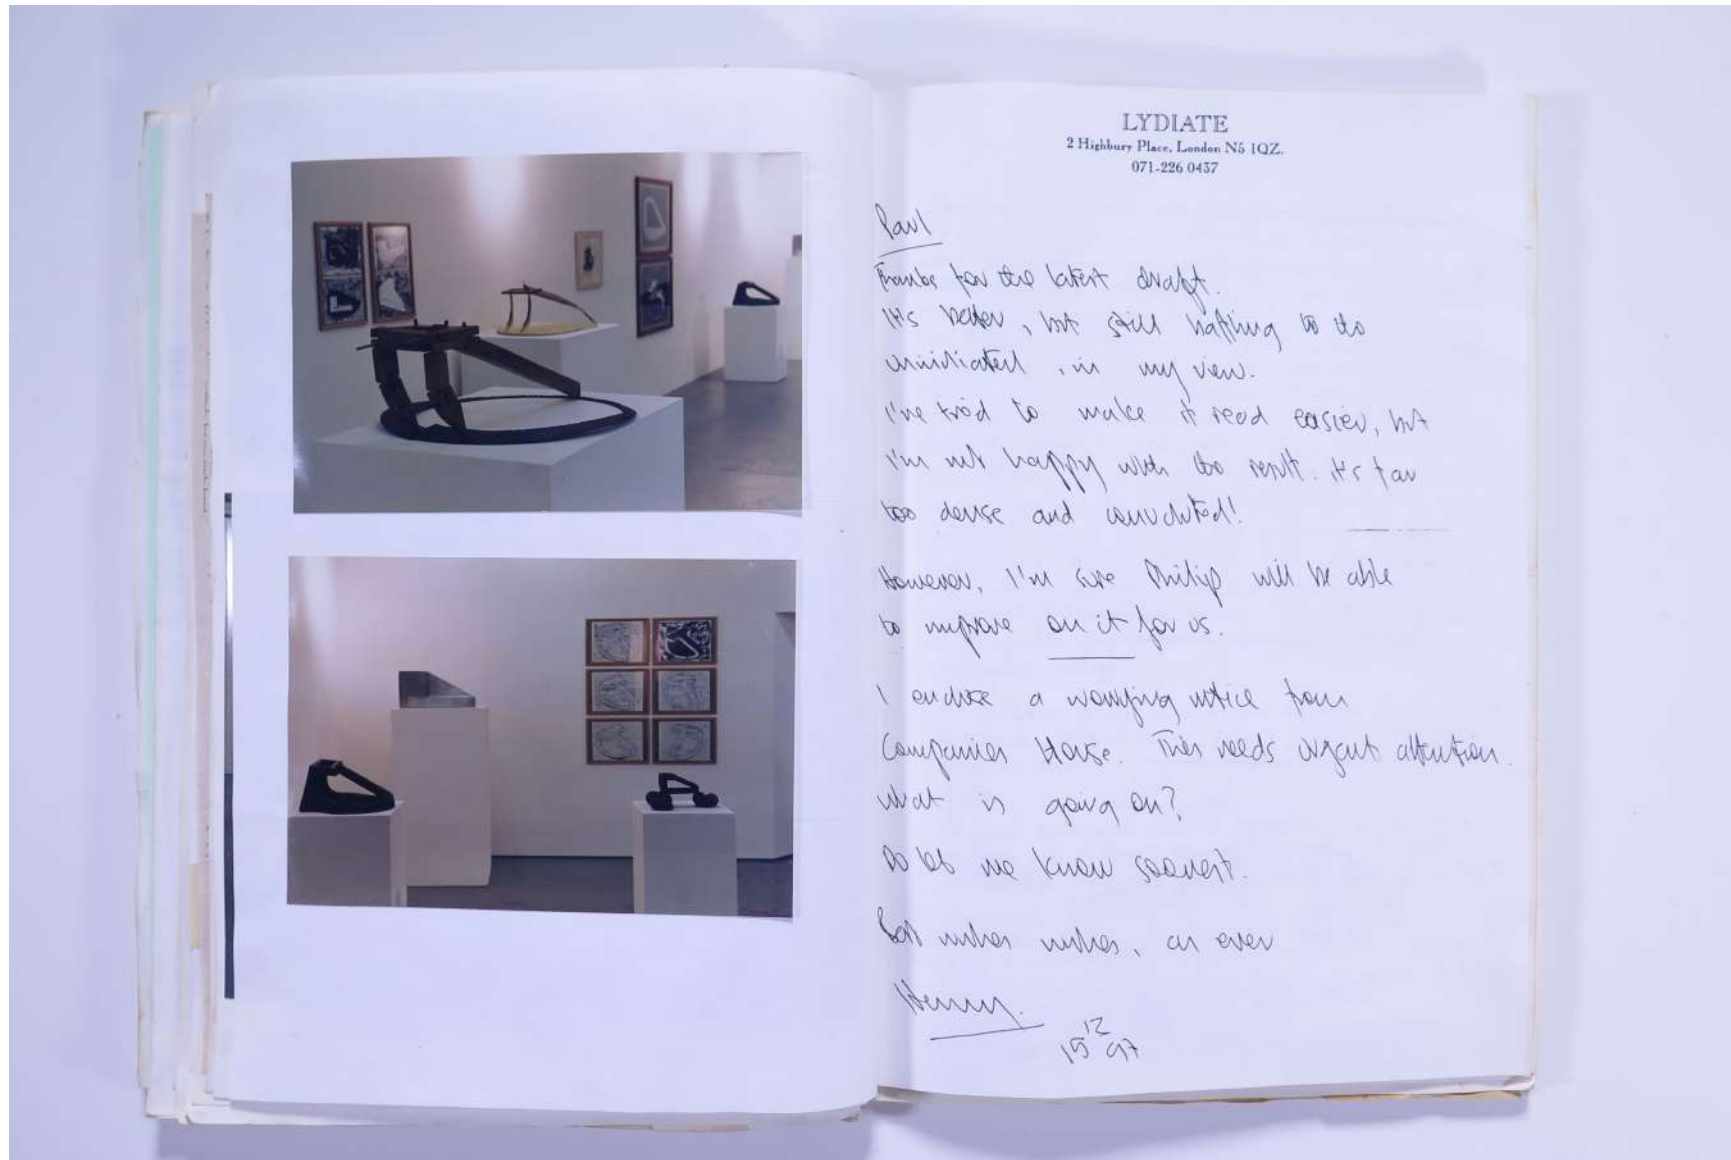 LYDIATE
2 Highbury Place, London N5 1QZ.
071-226 0437
Paul
Thanks for the latest draft.
It's better, but still baffling to the
uninitiated, in my view.
I've tried to make it read easier, but
I'm not happy with the result. it's far
too dense and convoluted!
However, I'm sure Philip will be able
to improve on it for us.
I enclose a worrying notice from
Companies House. This needs urgent attention.
What is going on?
Do let me know soonest.
Best wishes wishes, as ever
Henry.
12
15 97